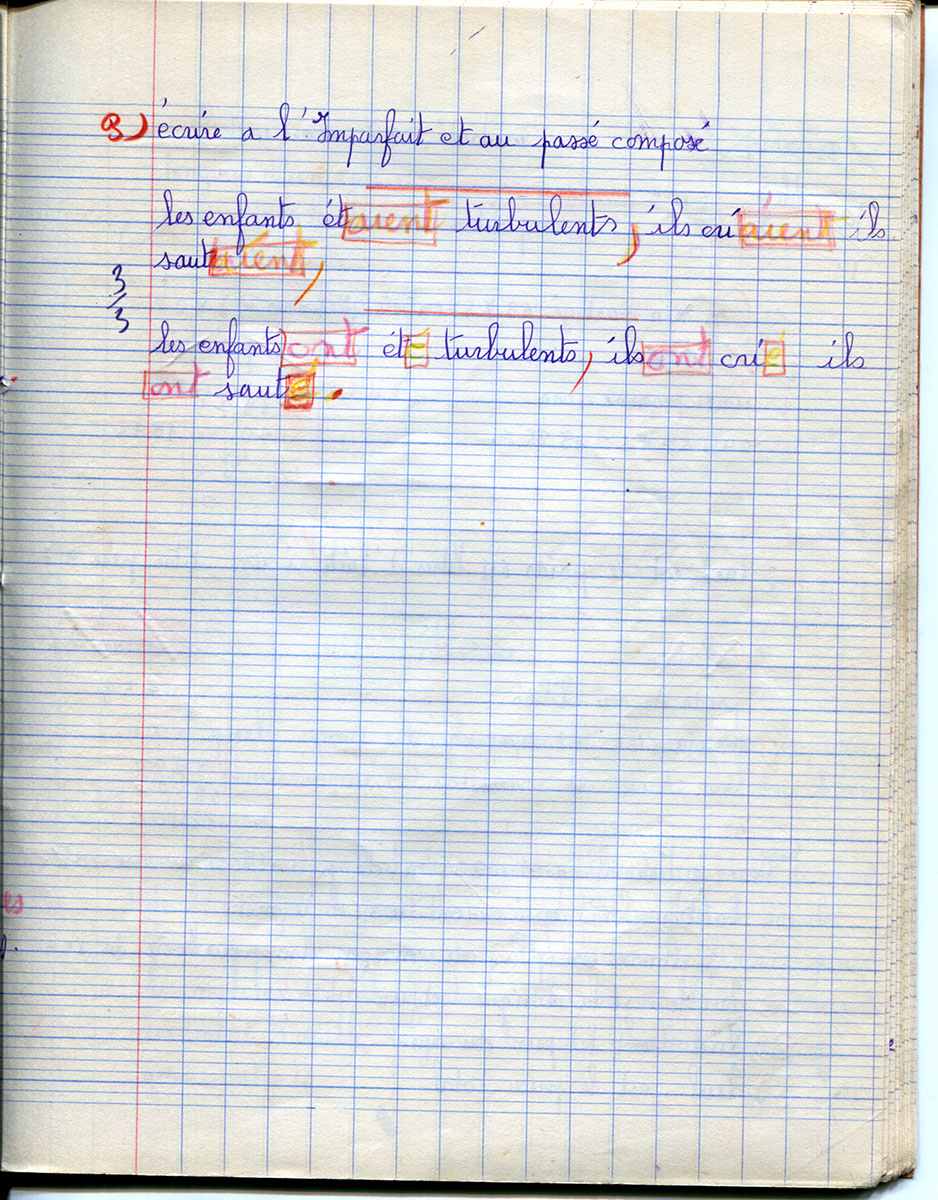 3) écrire a l'Imparfait et au passé composé
les enfants étaient turbulents, ils criaient ils
sautaient,
3/3
les enfants ont été turbulents, ils ont crié ils
ont sauté.
es